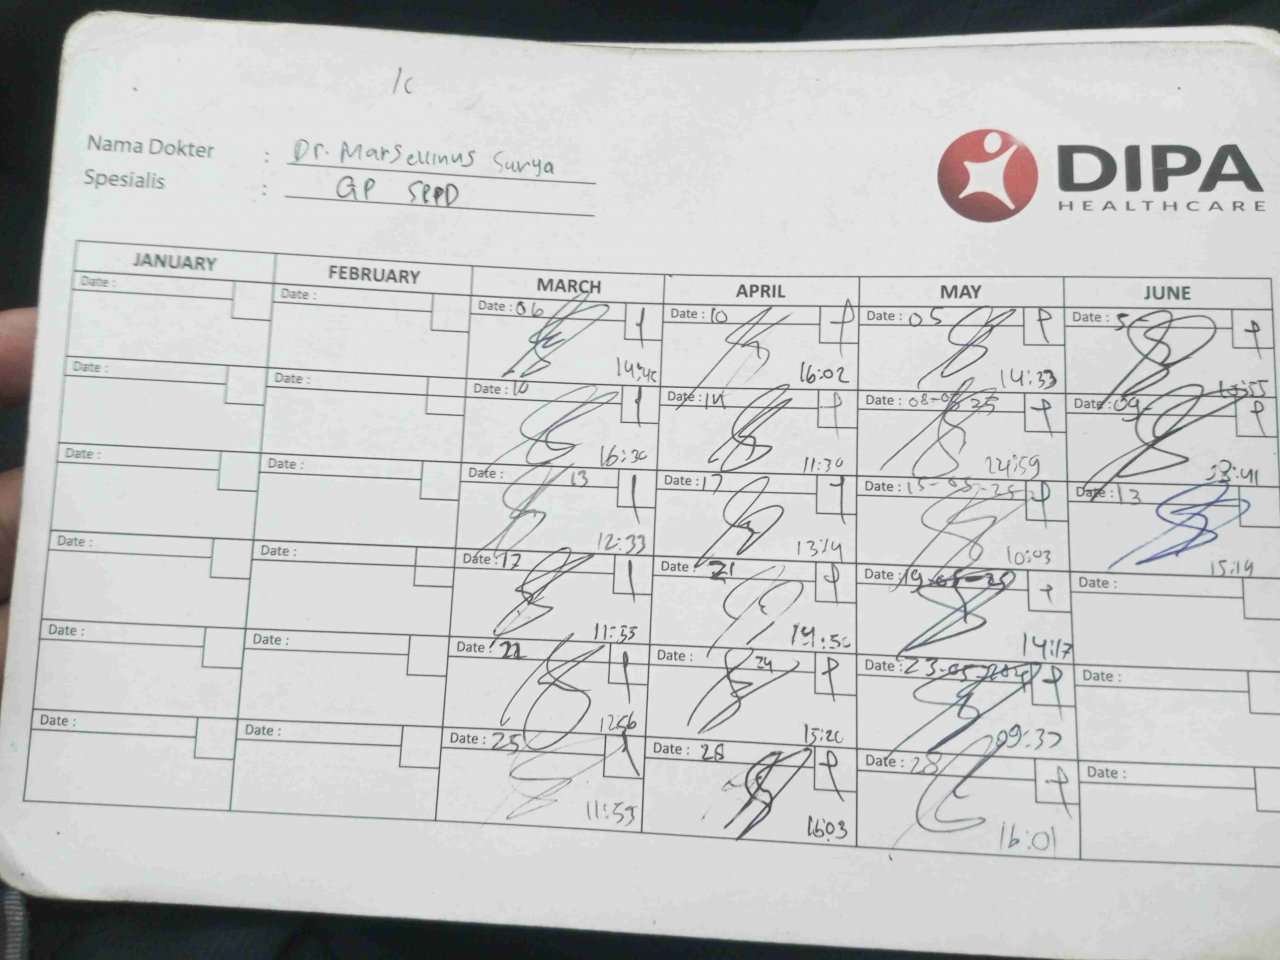 1c
Nama Dokter : Dr. Marsellinus Surya
Spesialis : GP SPPD
DIPA
HEALTHCARE
JANUARY FEBRUARY MARCH APRIL MAY JUNE
Date : Date : Date : 06 Date : 10 Date : 05 Date : 5
16:02 14:33
Date : Date : Date : 10 Date : 14 Date : Date : 09
16:30 11:30 14:59 13:41
Date : Date : Date : 13 Date : 17 Date : 15-05-25 Date : 13
12:33 13:14 10:03 15:19
Date : Date : Date : 17 Date : 21 Date : 19-05-25 Date :
11:33 14:50 14:17
Date : Date : Date : 22 Date : 24 Date : Date :
12:56 15:20 09:37
Date : Date : Date : 25 Date : 28 Date : 28 Date :
11:53 16:03 16:01